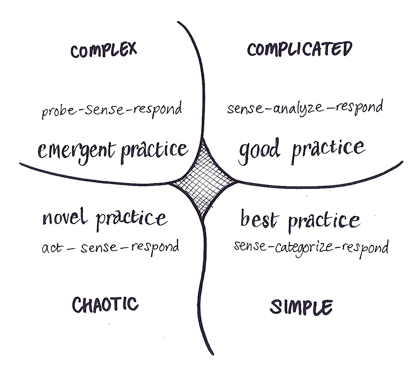 COMPLEX
probe-sense-respond
emergent practice
COMPLICATED
sense-analyze-respond
good practice
novel practice
act-sense-respond
CHAOTIC
best practice
sense-categorize-respond
SIMPLE